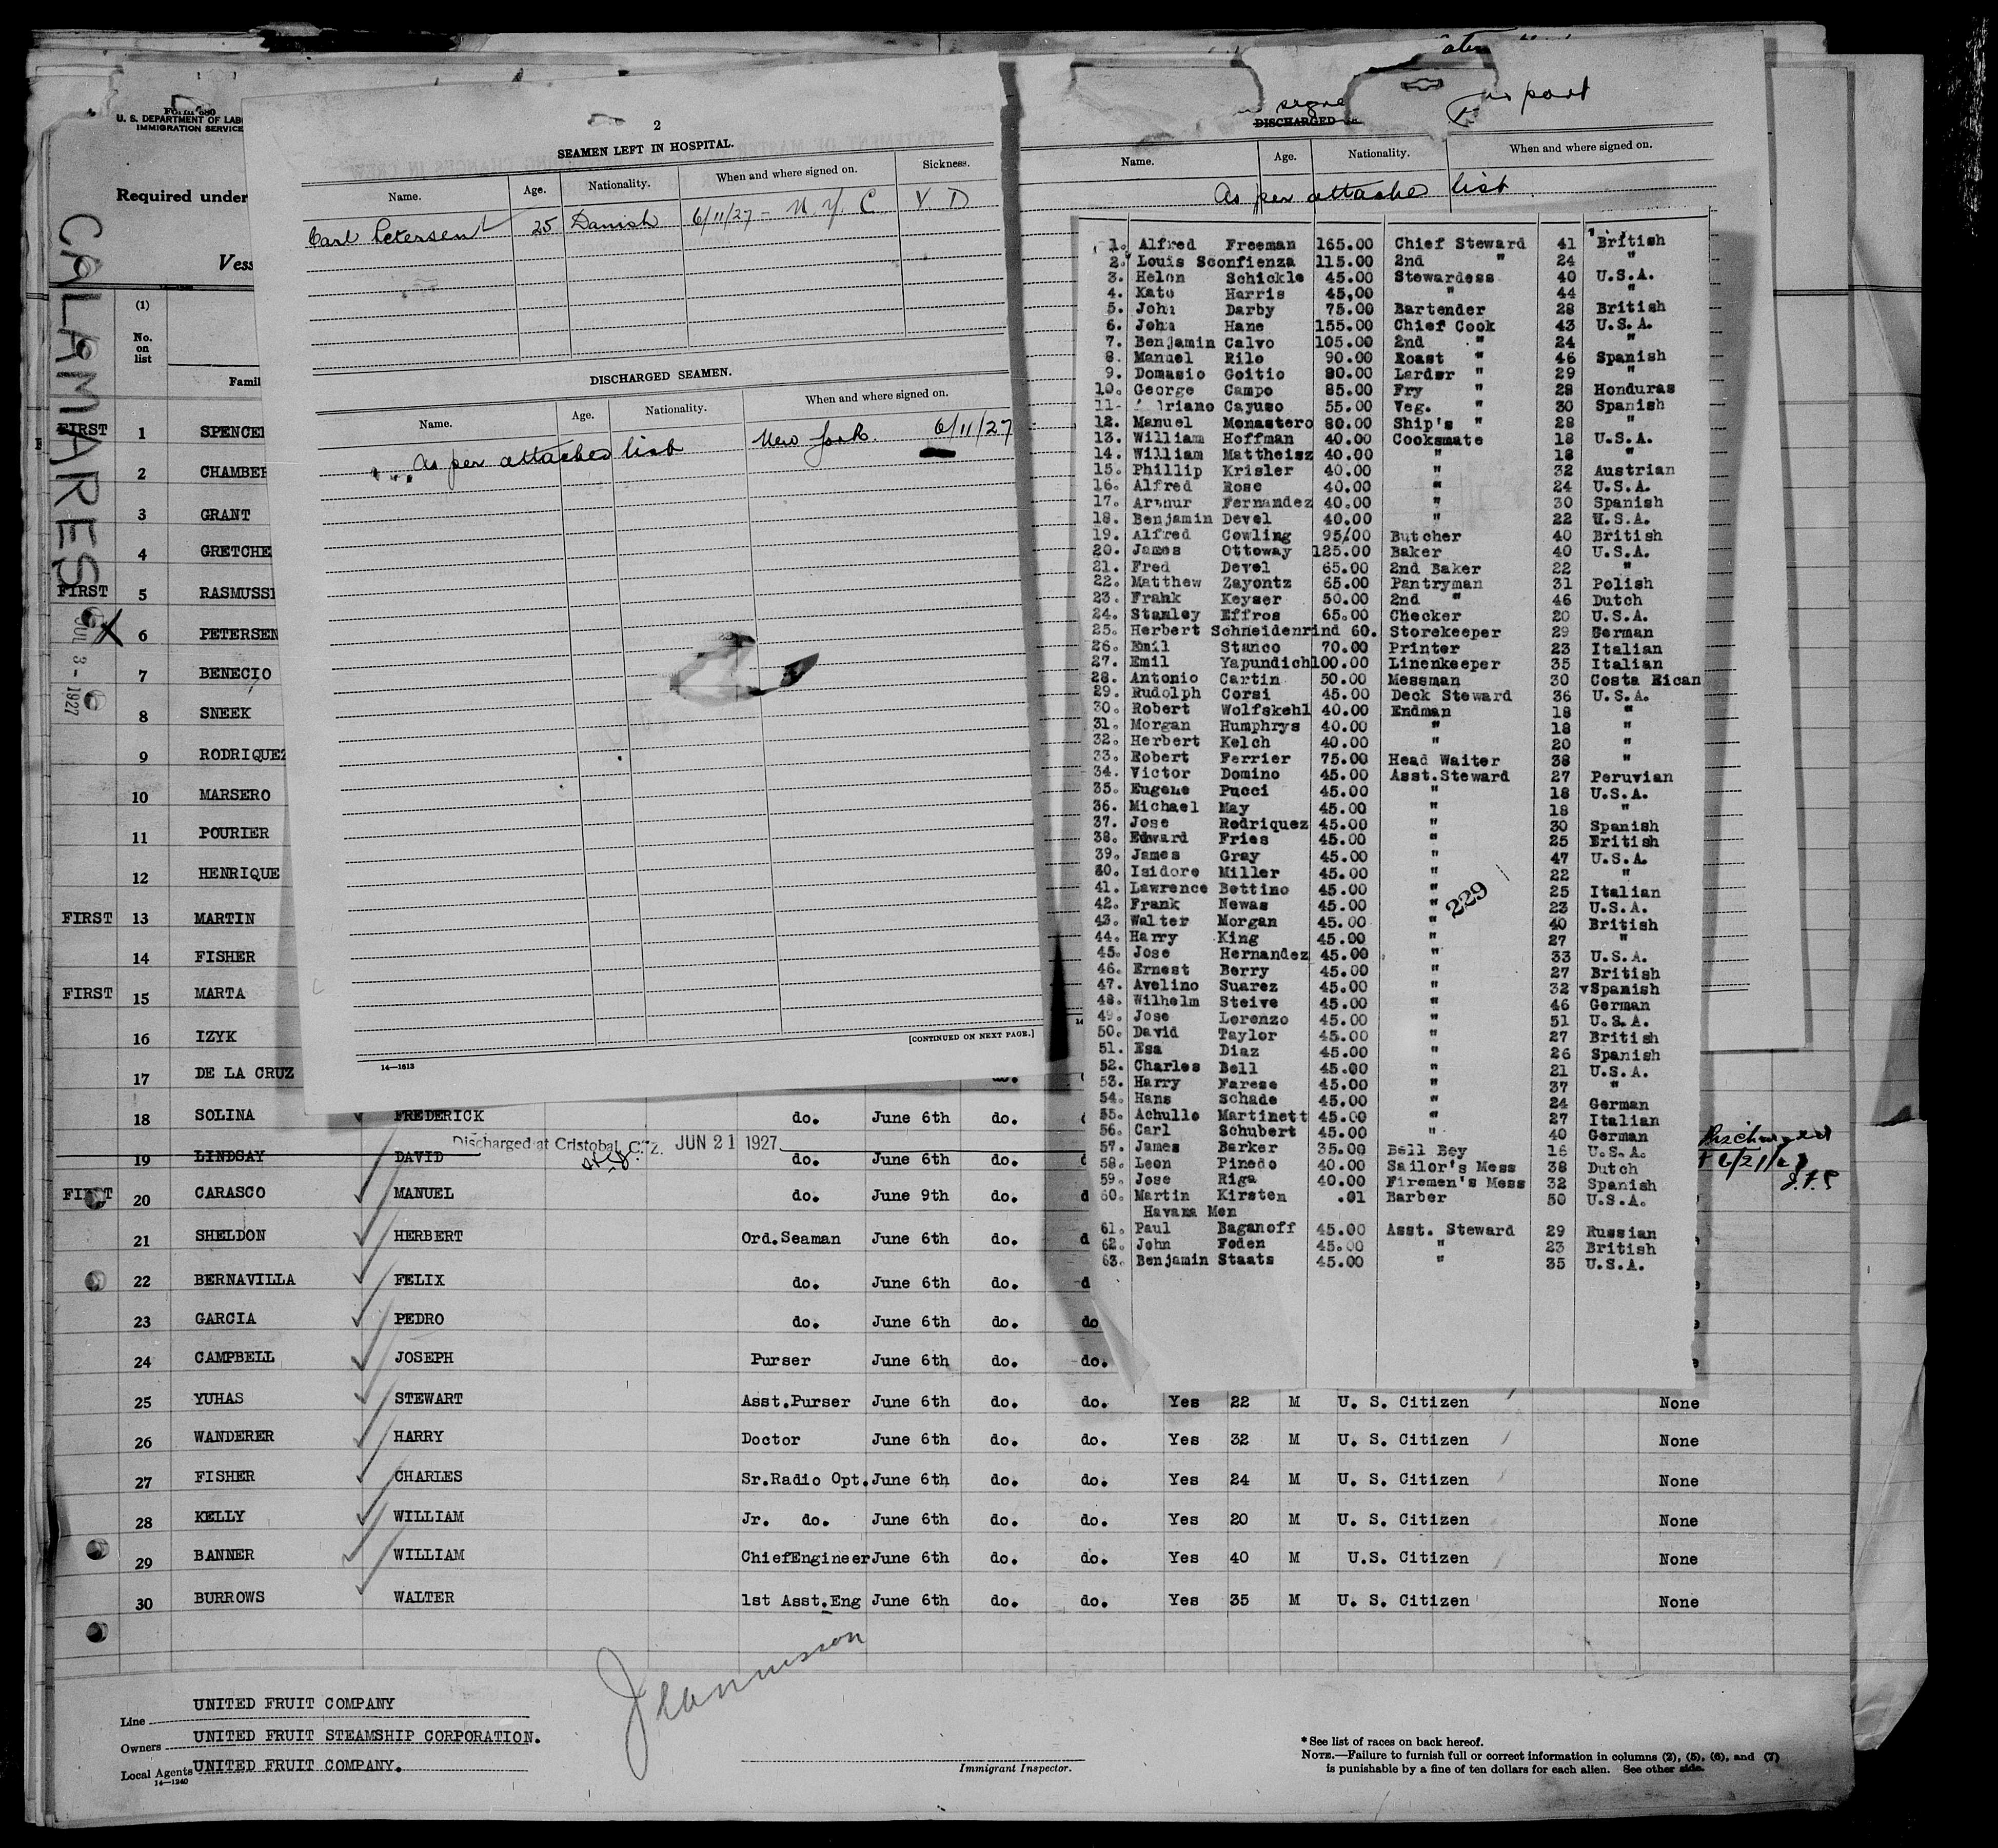 FORM 680
U. S. DEPARTMENT OF LAB
IMMIGRATION SERVICE
Required under
Vess
CALAMARES
JUL 3 - 1927
(1)
No. on list
Famil
FIRST 1 SPENCE
2 CHAMBER
3 GRANT
4 GRETCHE
FIRST 5 RASMUSS
X 6 PETERSEN
7 BENECIO
8 SNEEK
9 RODRIQUEZ
10 MARSERO
11 POURIER
12 HENRIQUE
FIRST 13 MARTIN
14 FISHER
FIRST 15 MARTA
16 IZYK
17 DE LA CRUZ do.
18 SOLINA FREDERICK do. June 6th do.
Discharged at Cristobal, C. Z. JUN 21 1927
19 LINDSAY DAVID do. June 6th do.
FIRST 20 CARASCO MANUEL do. June 9th do. d
21 SHELDON HERBERT Ord.Seaman June 6th do. d
22 BERNAVILLA FELIX do. June 6th do. d
23 GARCIA PEDRO do. June 6th do. do
24 CAMPBELL JOSEPH Purser June 6th do. do.
25 YUHAS STEWART Asst.Purser June 6th do. do. Yes 22 M U. S. Citizen None
26 WANDERER HARRY Doctor June 6th do. do. Yes 32 M U. S. Citizen None
27 FISHER CHARLES Sr.Radio Opt. June 6th do. do. Yes 24 M U. S. Citizen None
28 KELLY WILLIAM Jr. do. June 6th do. do. Yes 20 M U. S. Citizen None
29 BANNER WILLIAM ChiefEngineer June 6th do. do. Yes 40 M U.S. Citizen None
30 BURROWS WALTER 1st Asst.Eng June 6th do. do. Yes 35 M U. S. Citizen None
Line UNITED FRUIT COMPANY
Owners UNITED FRUIT STEAMSHIP CORPORATION.
Local Agents UNITED FRUIT COMPANY.
14—1240
Immigrant Inspector.
* See list of races on back hereof.
NOTE.—Failure to furnish full or correct information in columns (2), (5), (6), and (7)
is punishable by a fine of ten dollars for each alien. See other side.
2
SEAMEN LEFT IN HOSPITAL.
Name. Age. Nationality. When and where signed on. Sickness.
Carl Petersen 25 Danish 6/11/27 - N. Y. C V. D
DISCHARGED SEAMEN.
Name. Age. Nationality. When and where signed on.
As per attached list New York. 6/11/27
[CONTINUED ON NEXT PAGE.]
14—1613
port
DISCHARGED
Name. Age. Nationality. When and where signed on.
As per attached list
1. Alfred Freeman 165.00 Chief Steward 41 British
2. Louis Sconfienza 115.00 2nd " 24 "
3. Helen Schickle 45.00 Stewardess 40 U.S.A.
4. Kate Harris 45,00 " 44 "
5. John Darby 75.00 Bartender 28 British
6. John Hane 155.00 Chief Cook 43 U.S.A.
7. Benjamin Calvo 105.00 2nd " 24 "
8. Manuel Rilo 90.00 Roast " 46 Spanish
9. Domasio Goitio 80.00 Larder " 29 "
10. George Campo 85.00 Fry " 28 Honduras
11. riano Cayuso 55.00 Veg. " 30 Spanish
12. Manuel Monastero 80.00 Ship's " 28 "
13. William Hoffman 40.00 Cooksmate 18 U.S.A.
14. William Mattheisz 40.00 " 18 "
15. Phillip Krisler 40.00 " 32 Austrian
16. Alfred Rose 40.00 " 24 U.S.A.
17. Arthur Fernandez 40.00 " 30 Spanish
18. Benjamin Devel 40.00 " 22 U.S.A.
19. Alfred Cowling 95/00 Butcher 40 British
20. James Ottoway 125.00 Baker 40 U.S.A.
21. Fred Devel 65.00 2nd Baker 22 "
22. Matthew Zayontz 65.00 Pantryman 31 Polish
23. Frank Keyser 50.00 2nd " 46 Dutch
24. Stanley Effros 65.00 Checker 20 U.S.A.
25. Herbert Schneidenrind 60. Storekeeper 29 German
26. Emil Stanco 70.00 Printer 23 Italian
27. Emil Yapundich 100.00 Linenkeeper 35 Italian
28. Antonio Cartin 50.00 Messman 30 Costa Rican
29. Rudolph Corsi 45.00 Deck Steward 36 U.S.A.
30. Robert Wolfskehl 40.00 Endman 18 "
31. Morgan Humphrys 40.00 " 18 "
32. Herbert Kelch 40.00 " 20 "
33. Robert Ferrier 75.00 Head Waiter 38 "
34. Victor Domino 45.00 Asst.Steward 27 Peruvian
35. Eugene Pucci 45.00 " 18 U.S.A.
36. Michael May 45.00 " 18 "
37. Jose Rodriquez 45.00 " 30 Spanish
38. Edward Fries 45.00 " 25 British
39. James Gray 45.00 " 47 U.S.A.
40. Isidore Miller 45.00 " 22 "
41. Lawrence Bettino 45.00 " 25 Italian
42. Frank Newas 45.00 " 23 U.S.A.
229
43. Walter Morgan 45.00 " 40 British
44. Harry King 45.00 " 27 "
45. Jose Hernandez 45.00 " 33 U.S.A.
46. Ernest Berry 45.00 " 27 British
47. Avelino Suarez 45.00 " 32 Spanish
48. Wilhelm Steive 45.00 " 46 German
49. Jose Lorenzo 45.00 " 51 U.S.A.
50. David Taylor 45.00 " 27 British
51. Esa Diaz 45.00 " 26 Spanish
52. Charles Bell 45.00 " 21 U.S.A.
53. Harry Farese 45.00 " 37 "
54. Hans Schade 45.00 " 24 German
55. Achulle Martinett 45.00 " 27 Italian
56. Carl Schubert 45.00 " 40 German
57. James Barker 35.00 Bell Boy 16 U.S.A.
58. Leon Pinedo 40.00 Sailor's Mess 38 Dutch
59. Jose Riga 40.00 Firemen's Mess 32 Spanish
60. Martin Kirsten .01 Barber 50 U.S.A.
Havana Men
61. Paul Baganoff 45.00 Asst. Steward 29 Russian
62. John Foden 45.00 " 23 British
63. Benjamin Staats 45.00 " 35 U.S.A.
Discharged
6/21/27